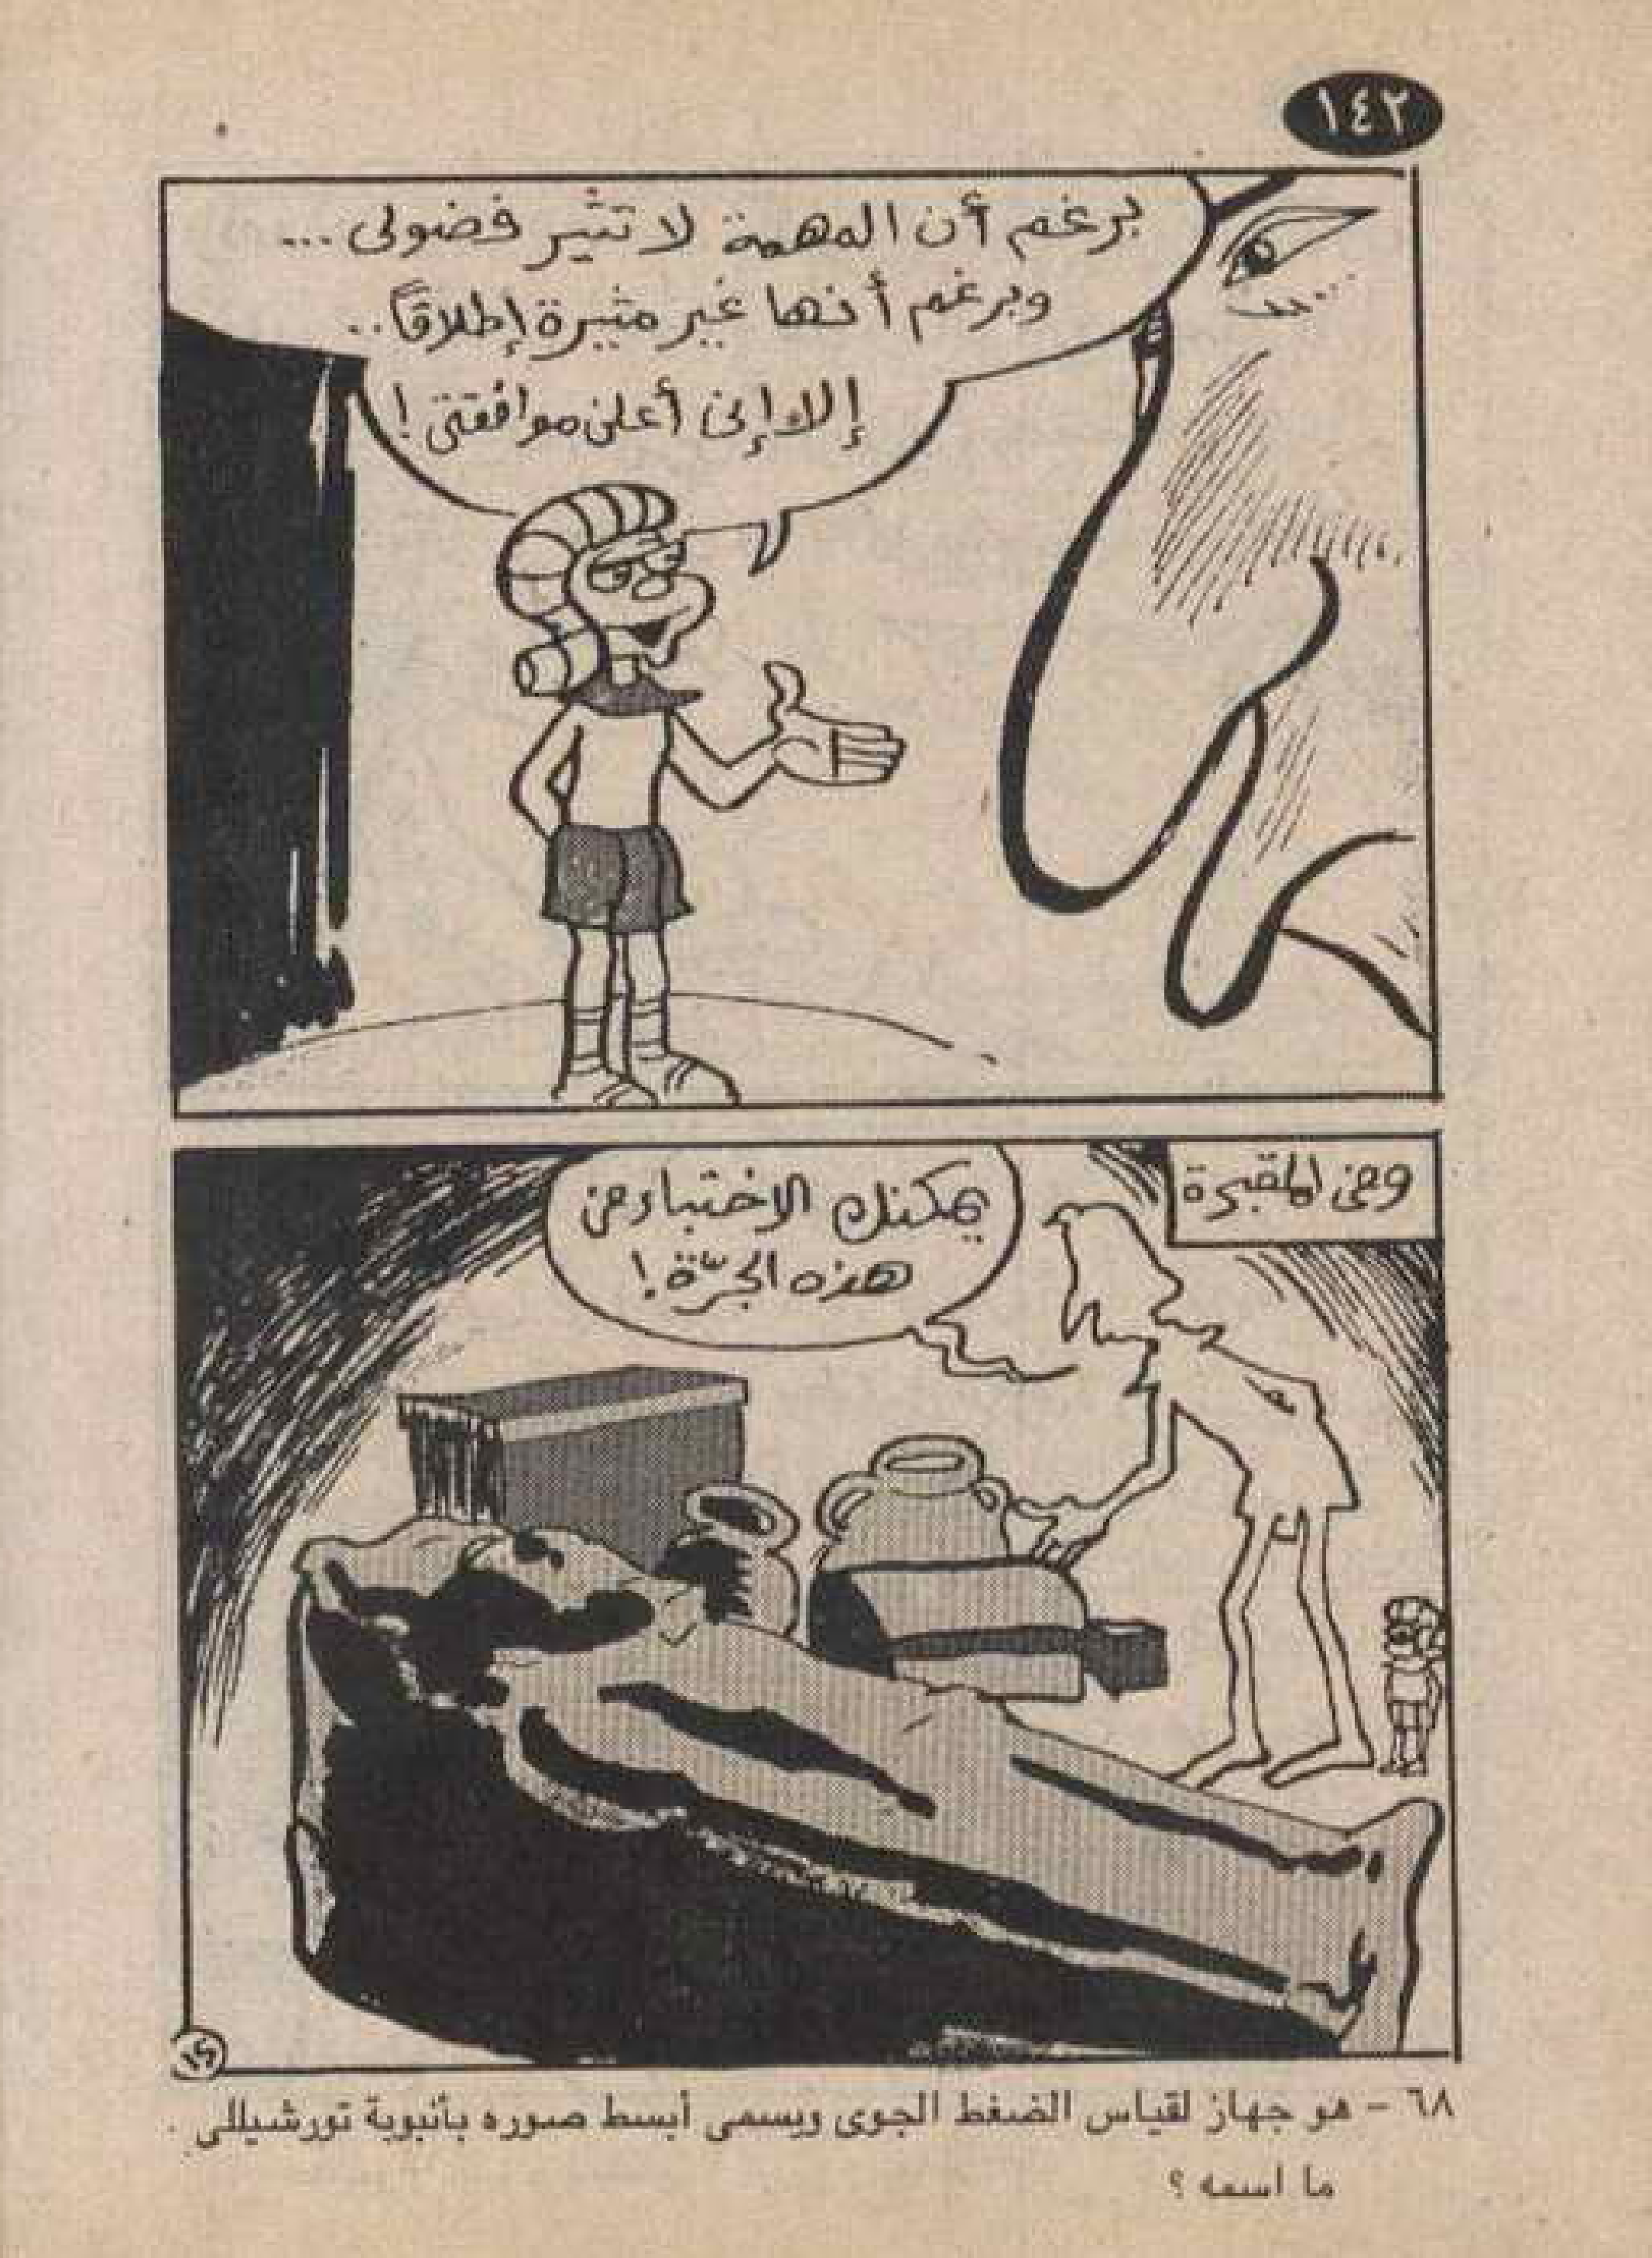 ١٤٢
برغم أن المهمة لا تثير فضولى ...
وبرغم أنها غير مثيرة إطلاقاً ..
إلا إنى أعلن موافقتى !
وفى المقبرة
يمكنك الاختباء فى
هذه الجرّة !
١٥
٦٨ - هو جهاز لقياس الضغط الجوى ويسمى أبسط صوره بأنبوبة تورشيللى .
ما اسمه ؟